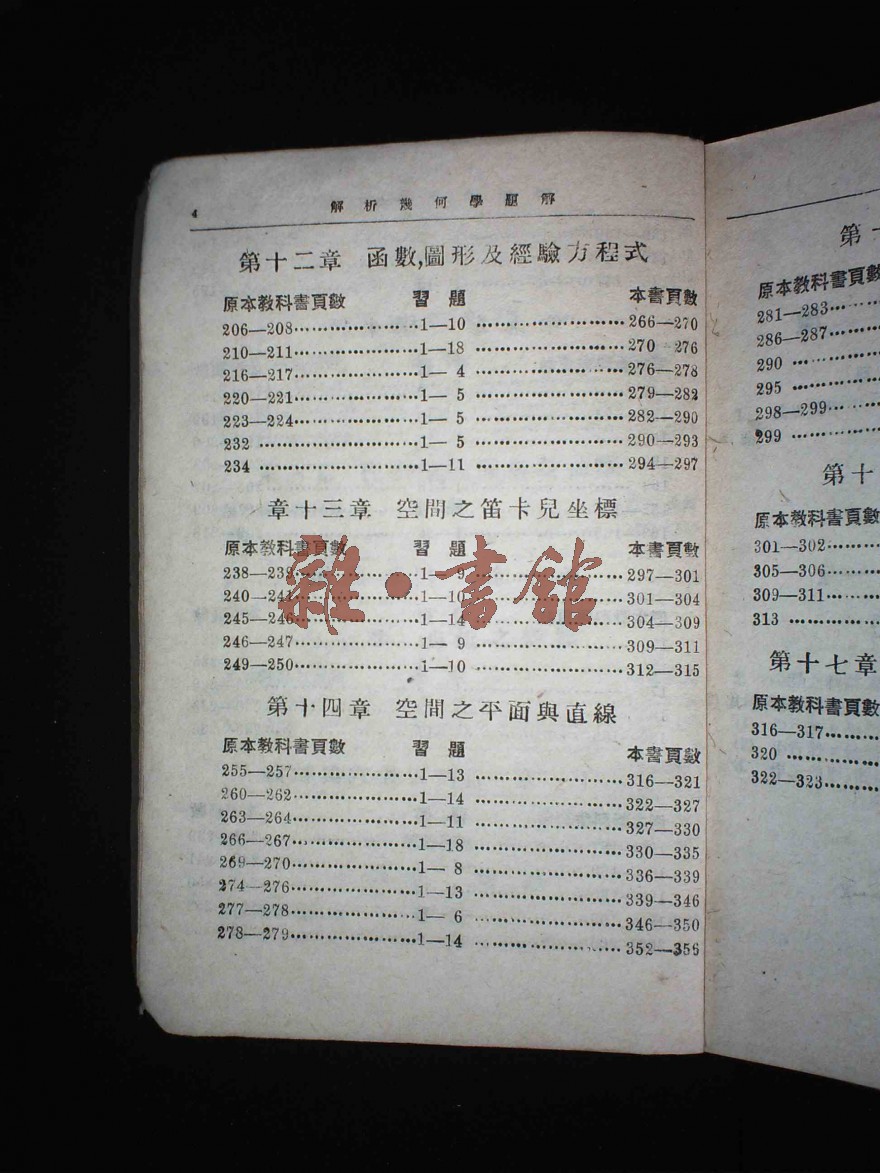 4 解析幾何學題解
第十二章 函數,圖形及經驗方程式
原本教科書頁數 習題 本書頁數
206—208 1—10 266—270
210—211 1—18 270 276
216—217 1— 4 276—278
220—221 1— 5 279—282
223—224 1— 5 282—290
232 1— 5 290—293
234 1—11 294—297
章十三章 空間之笛卡兒坐標
原本教科書頁數 習題 本書頁數
238—239 1— 9 297—301
240—241 1—10 301—304
245—246 1—14 304—309
246—247 1— 9 309—311
249—250 1—10 312—315
第十四章 空間之平面與直線
原本教科書頁數 習題 本書頁數
255—257 1—13 316—321
260—262 1—14 322—327
263—264 1—11 327—330
266—267 1—18 330—335
269—270 1— 8 336—339
274—276 1—13 339—346
277—278 1— 6 346—350
278—279 1—14 352—356
雜·書館
第十
原本教科書頁數
281—283
286—287
290
295
298—299
299
第十
原本教科書頁數
301—302
305—306
309—311
313
第十七章
原本教科書頁數
316—317
320
322—323